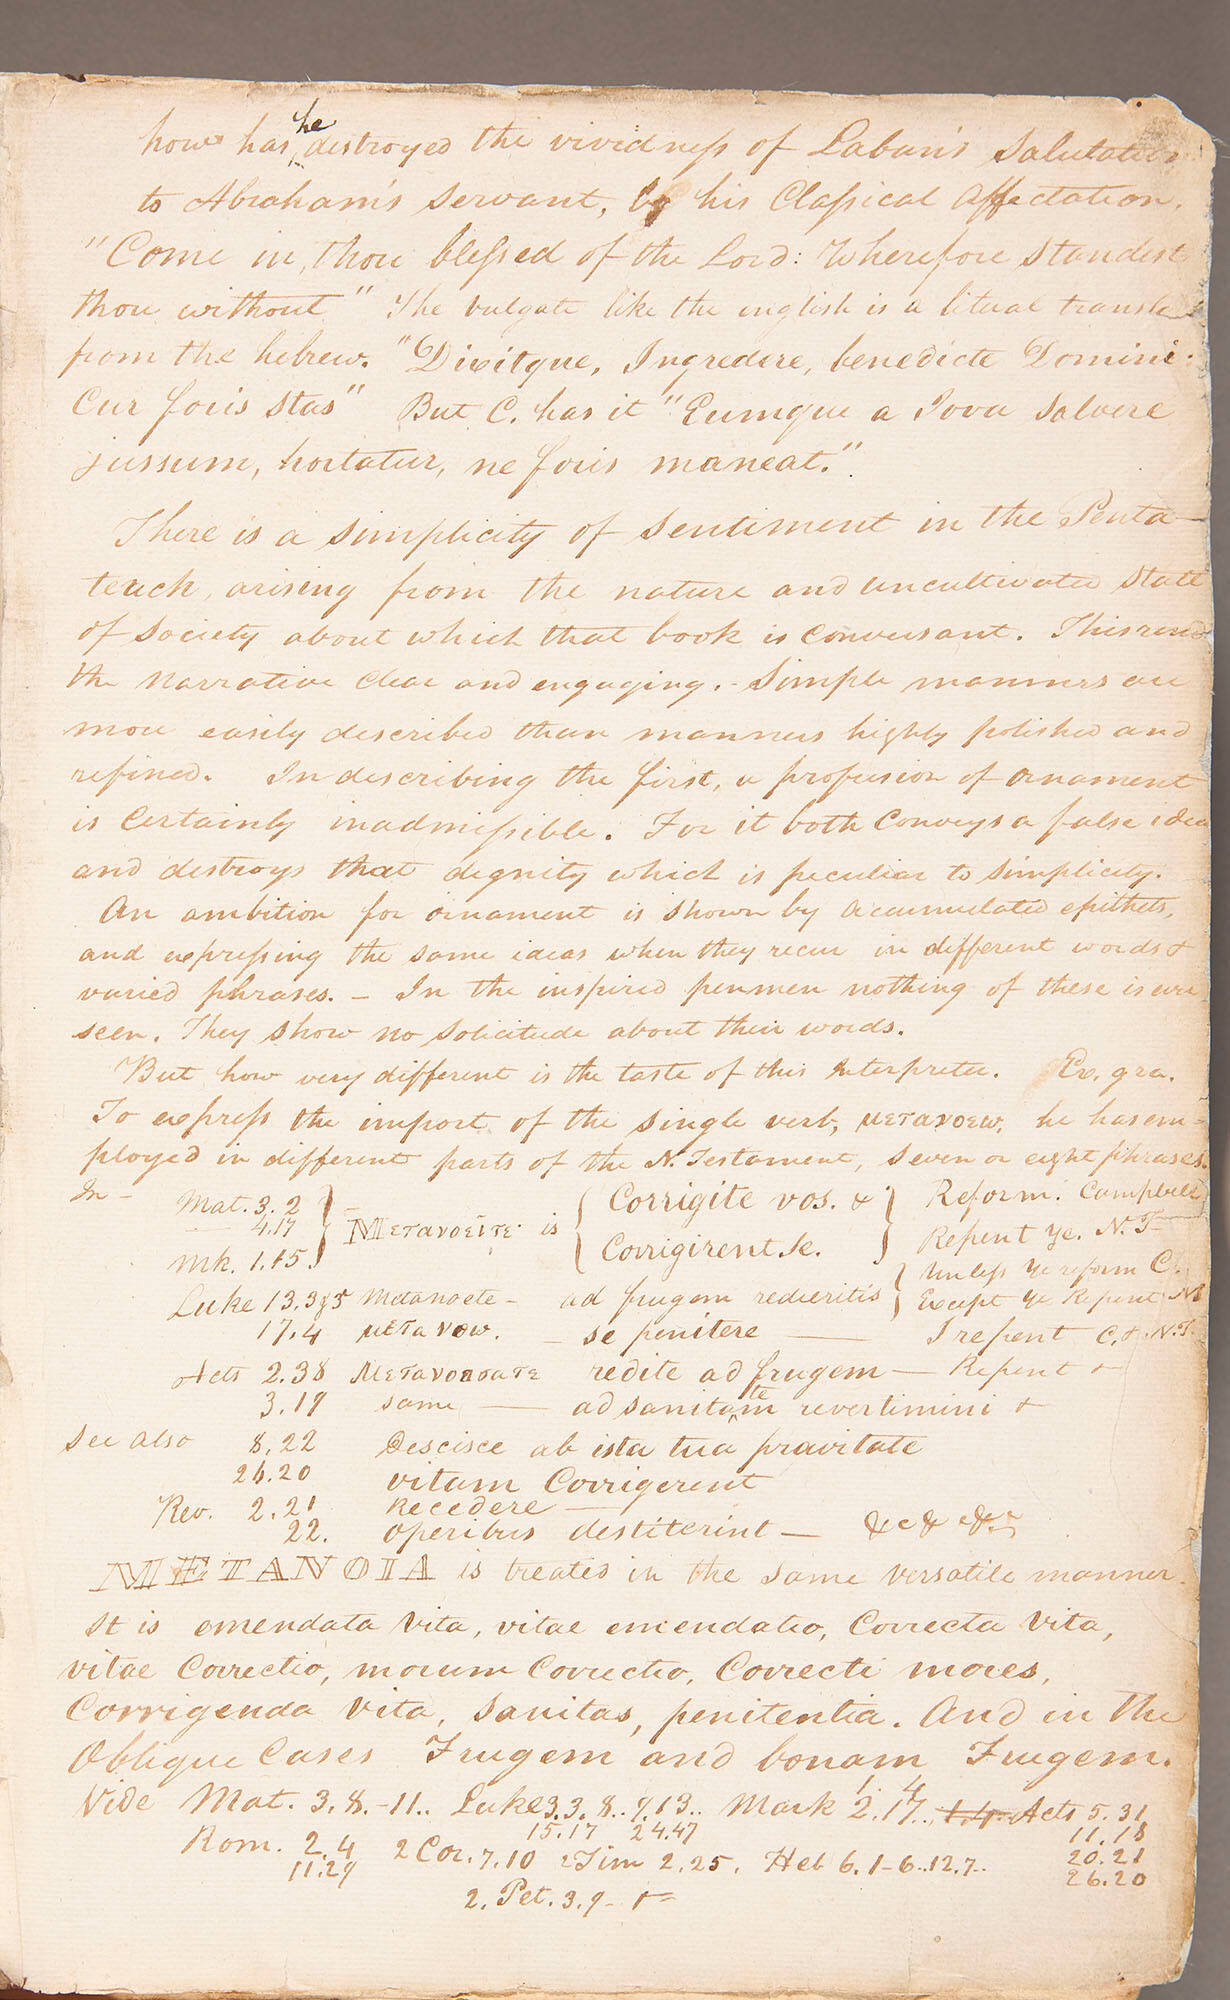 how has he destroyed the vividness of Laban's Salutation
to Abraham's servant, by his Classical affectation.
"Come in, thou blessed of the Lord: Wherefore standest
thou without" The vulgate like the english is a litual
from the hebrew. "Dixitque, Ingredere, benedicte Domini:
Cur foris stas" But C. has it "Eumque a Iova salvere
jussum, hortatur, ne foris maneat."
There is a simplicity of sentiment in the Penta-
teuch, arising from the nature and uncultivated state
of society about which that book is conversant. This
the narrative clear and engaging. - Simple manners are
more easily described than manners highly polished and
refined. In describing the first, a profusion of ornament
is certainly inadmissible. For it both conveys a false idea
and destroys that dignity which is peculiar to simplicity.
An ambition for ornament is shown by accumulated epithets,
and expressing the same ideas when they recur in different words &
varied phrases. - In the inspired penmen nothing of these is ever
seen. They show no solicitude about their words.
But how very different is the taste of this interpreter. Ex. gra.
To express the import of the single verb, μετανοεω, he has em-
ployed in different parts of the N. Testament, seven or eight phrases.
In - Mat. 3. 2 Reform. Campbell
4.17 Μετανοεῖτε is Corrigite vos. &
Mk. 1.15. Corrigirent &c. Repent ye. N. T
Unless ye reform C.
Luke 13.3&5 Metanoete - ad frugem redieritis Except ye Repent
17.4 μετανοω. - se penitere - I repent C. & N.T.
Acts 2.38 Μετανοησατε redite ad frugem - Repent &
3.19 same - ad sanitatem revertimini &
See also 8.22 Descisce ab ista tua pravitate
26.20 vitam Corrigerent
Rev. 2.21 Recedere -
22. operibus destiterint - &c & &c
METANOIA is treated in the same versatile manner.
It is emendata vita, vitae emendatio, Correcta vita,
vitae Correctio, morum Correctio, Correcti mores,
Corrigenda vita, sanitas, penitentia. And in the
Oblique Cases Frugem and bonam Frugem.
Vide Mat. 3.8.-11.. Luke 3.3.8..9.13.. Mark 1.4 2.17.. 1.4 Acts 5.31
15.17 24.47 11.18
Rom. 2.4 2 Cor. 7.10 2 Tim 2.25. Heb 6.1-6..12.7.. 20.21
11.29 26.20
2. Pet. 3.9-